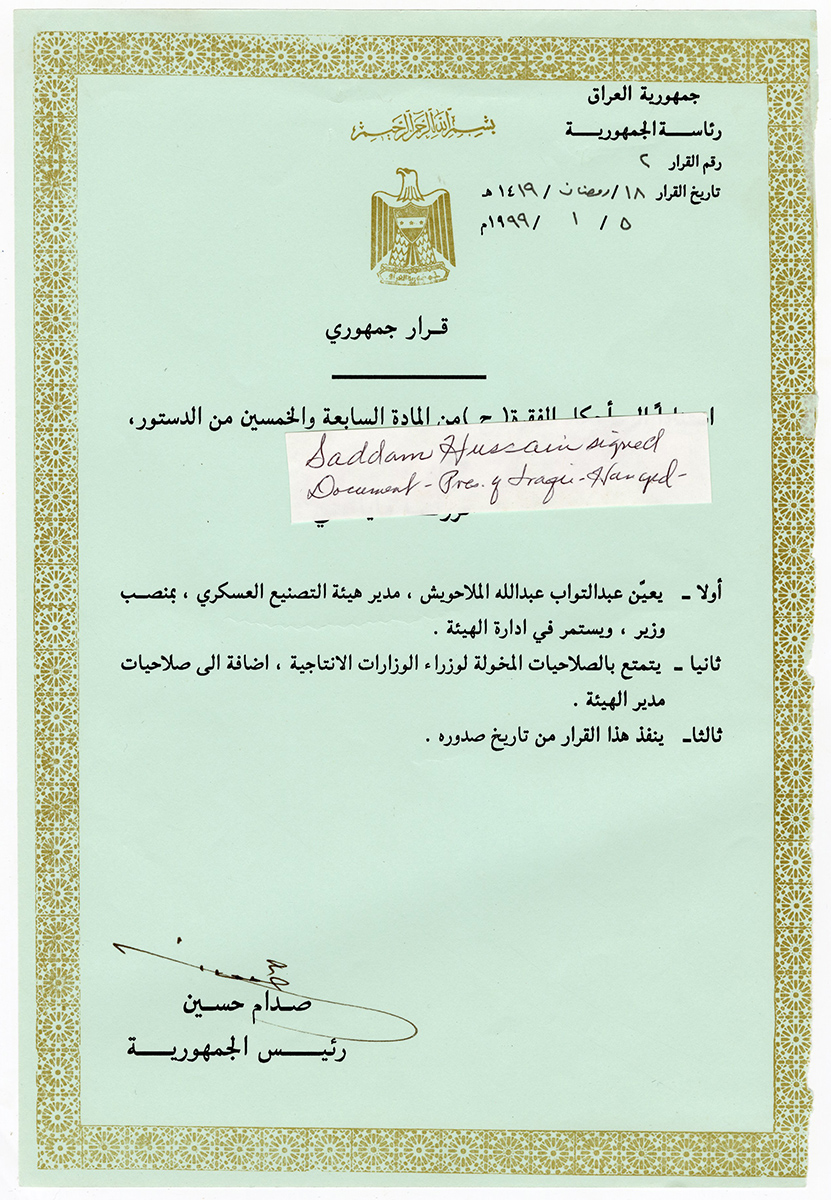 جمهورية العراق
رئاســة الجمهوريــة
رقم القرار ٢
تاريخ القرار ١٨ / رمضان / ١٤١٩ هـ
٥ / ١ / ١٩٩٩م
بسم الله الرحمن الرحيم
قـرار جمهوري
الفقرة ( ج ) من المادة السابعة والخمسين من الدستور،
Saddam Hussain signed
Document - Pres. of Iraqi - Hanged -
أولا ـ يعيّن عبدالتواب عبدالله الملاحويش ، مدير هيئة التصنيع العسكري ، بمنصب
وزير ، ويستمر في ادارة الهيئة .
ثانيا ـ يتمتع بالصلاحيات المخولة لوزراء الوزارات الانتاجية ، اضافة الى صلاحيات
مدير الهيئة .
ثالثاـ ينفذ هذا القرار من تاريخ صدوره .
صـدام حسـين
رئيــس الجمهوريــة